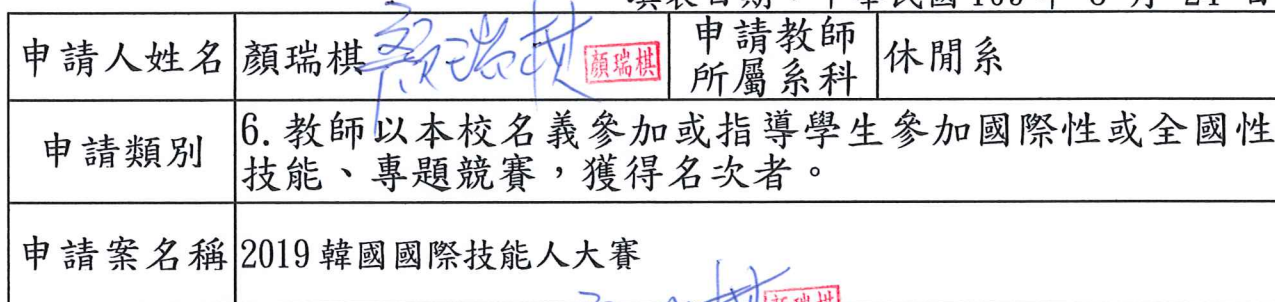 申請人姓名 顏瑞棋 顏瑞棋 顏瑞棋 申請教師所屬系科 休閒系
申請類別 6.教師以本校名義參加或指導學生參加國際性或全國性
技能、專題競賽，獲得名次者。
申請案名稱 2019韓國國際技能人大賽